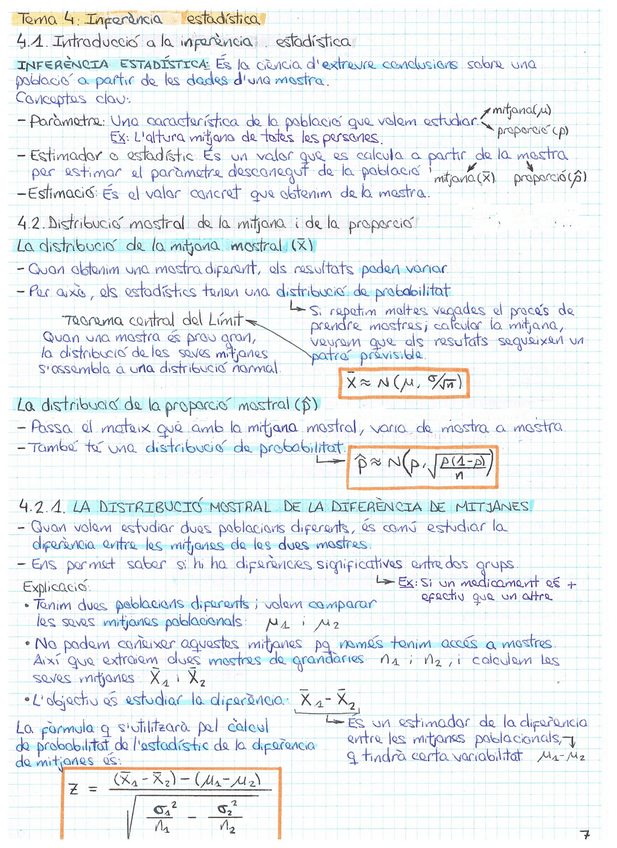 Tema 4: Inferència estadística
4.1. Introducció a la inferència estadística
INFERÈNCIA ESTADÍSTICA: És la ciència d'extreure conclusions sobre una
població a partir de les dades d'una mostra.
Conceptes clau:
- Paràmetre: Una característica de la població que volem estudiar. → mitjana (μ)
Ex: L'altura mitjana de totes les persones. → proporció (p)
- Estimador o estadístic: És un valor que es calcula a partir de la mostra
per estimar el paràmetre desconegut de la població. mitjana (x̄) proporció (p̂)
- Estimació: És el valor concret que obtenim de la mostra.
4.2. Distribució mostral de la mitjana i de la proporció
La distribució de la mitjana mostral (x̄)
- Quan obtenim una mostra diferent, els resultats poden variar
- Per això, els estadístics tenen una distribució de probabilitat
↳ Si repetim moltes vegades el procés de
prendre mostres i calcular la mitjana,
veurem que els resultats segueixen un
patró previsible.
Teorema central del Límit
Quan una mostra és prou gran,
la distribució de les seves mitjanes
s'assembla a una distribució normal.
X̄ ≈ N(μ, σ/√n)
La distribució de la proporció mostral (p̂)
- Passa el mateix que amb la mitjana mostral, varia de mostra a mostra
- També té una distribució de probabilitat.
↳ p̂ ≈ N(p, √(p(1-p)/n))
4.2.1. LA DISTRIBUCIÓ MOSTRAL DE LA DIFERÈNCIA DE MITJANES
- Quan volem estudiar dues poblacions diferents, és comú estudiar la
diferència entre les mitjanes de les dues mostres.
- Ens permet saber si hi ha diferències significatives entre dos grups.
↳ Ex: Si un medicament és +
efectiu que un altre
Explicació:
• Tenim dues poblacions diferents i volem comparar
les seves mitjanes poblacionals: μ1 i μ2
• No podem conèixer aquestes mitjanes pq només tenim accés a mostres.
Així que extraiem dues mostres de grandàries n1 i n2, i calculem les
seves mitjanes X̄1 i X̄2
• L'objectiu és estudiar la diferència: X̄1 - X̄2
↳ És un estimador de la diferència
entre les mitjanes poblacionals,
q tindrà certa variabilitat μ1-μ2
La fórmula q s'utilitzarà pel càlcul
de probabilitat de l'estadístic de la diferència
de mitjanes és:
Z = ((X̄1 - X̄2) - (μ1 - μ2)) / √(σ1²/n1 - σ2²/n2)
7